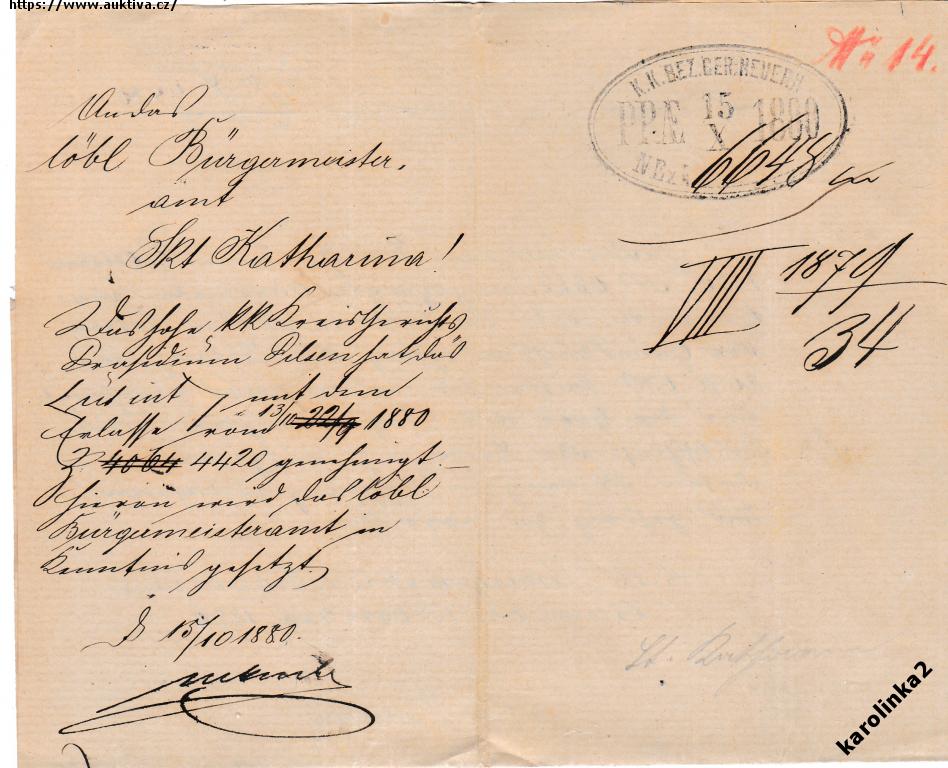 https://www.auktiva.cz/
No 14.
K.K. BEZ. GER. NEUERN
PRÆ 15 X 1880
6648
VIII 1879
34
An das
löbl Bürgermeister,
amt
Skt Katharina!
Das hohe kk Kreisgerichts
Praesidium Pilsen hat das
mit dem
Erlasse vom 13/10 22/9 1880
Z. 4064 4420 genehmigt.
Hievon wird das löbl
Bürgermeisteramt in
Kenntnis gesetzt.
15/10 1880.
St. Katharina
karolinka2